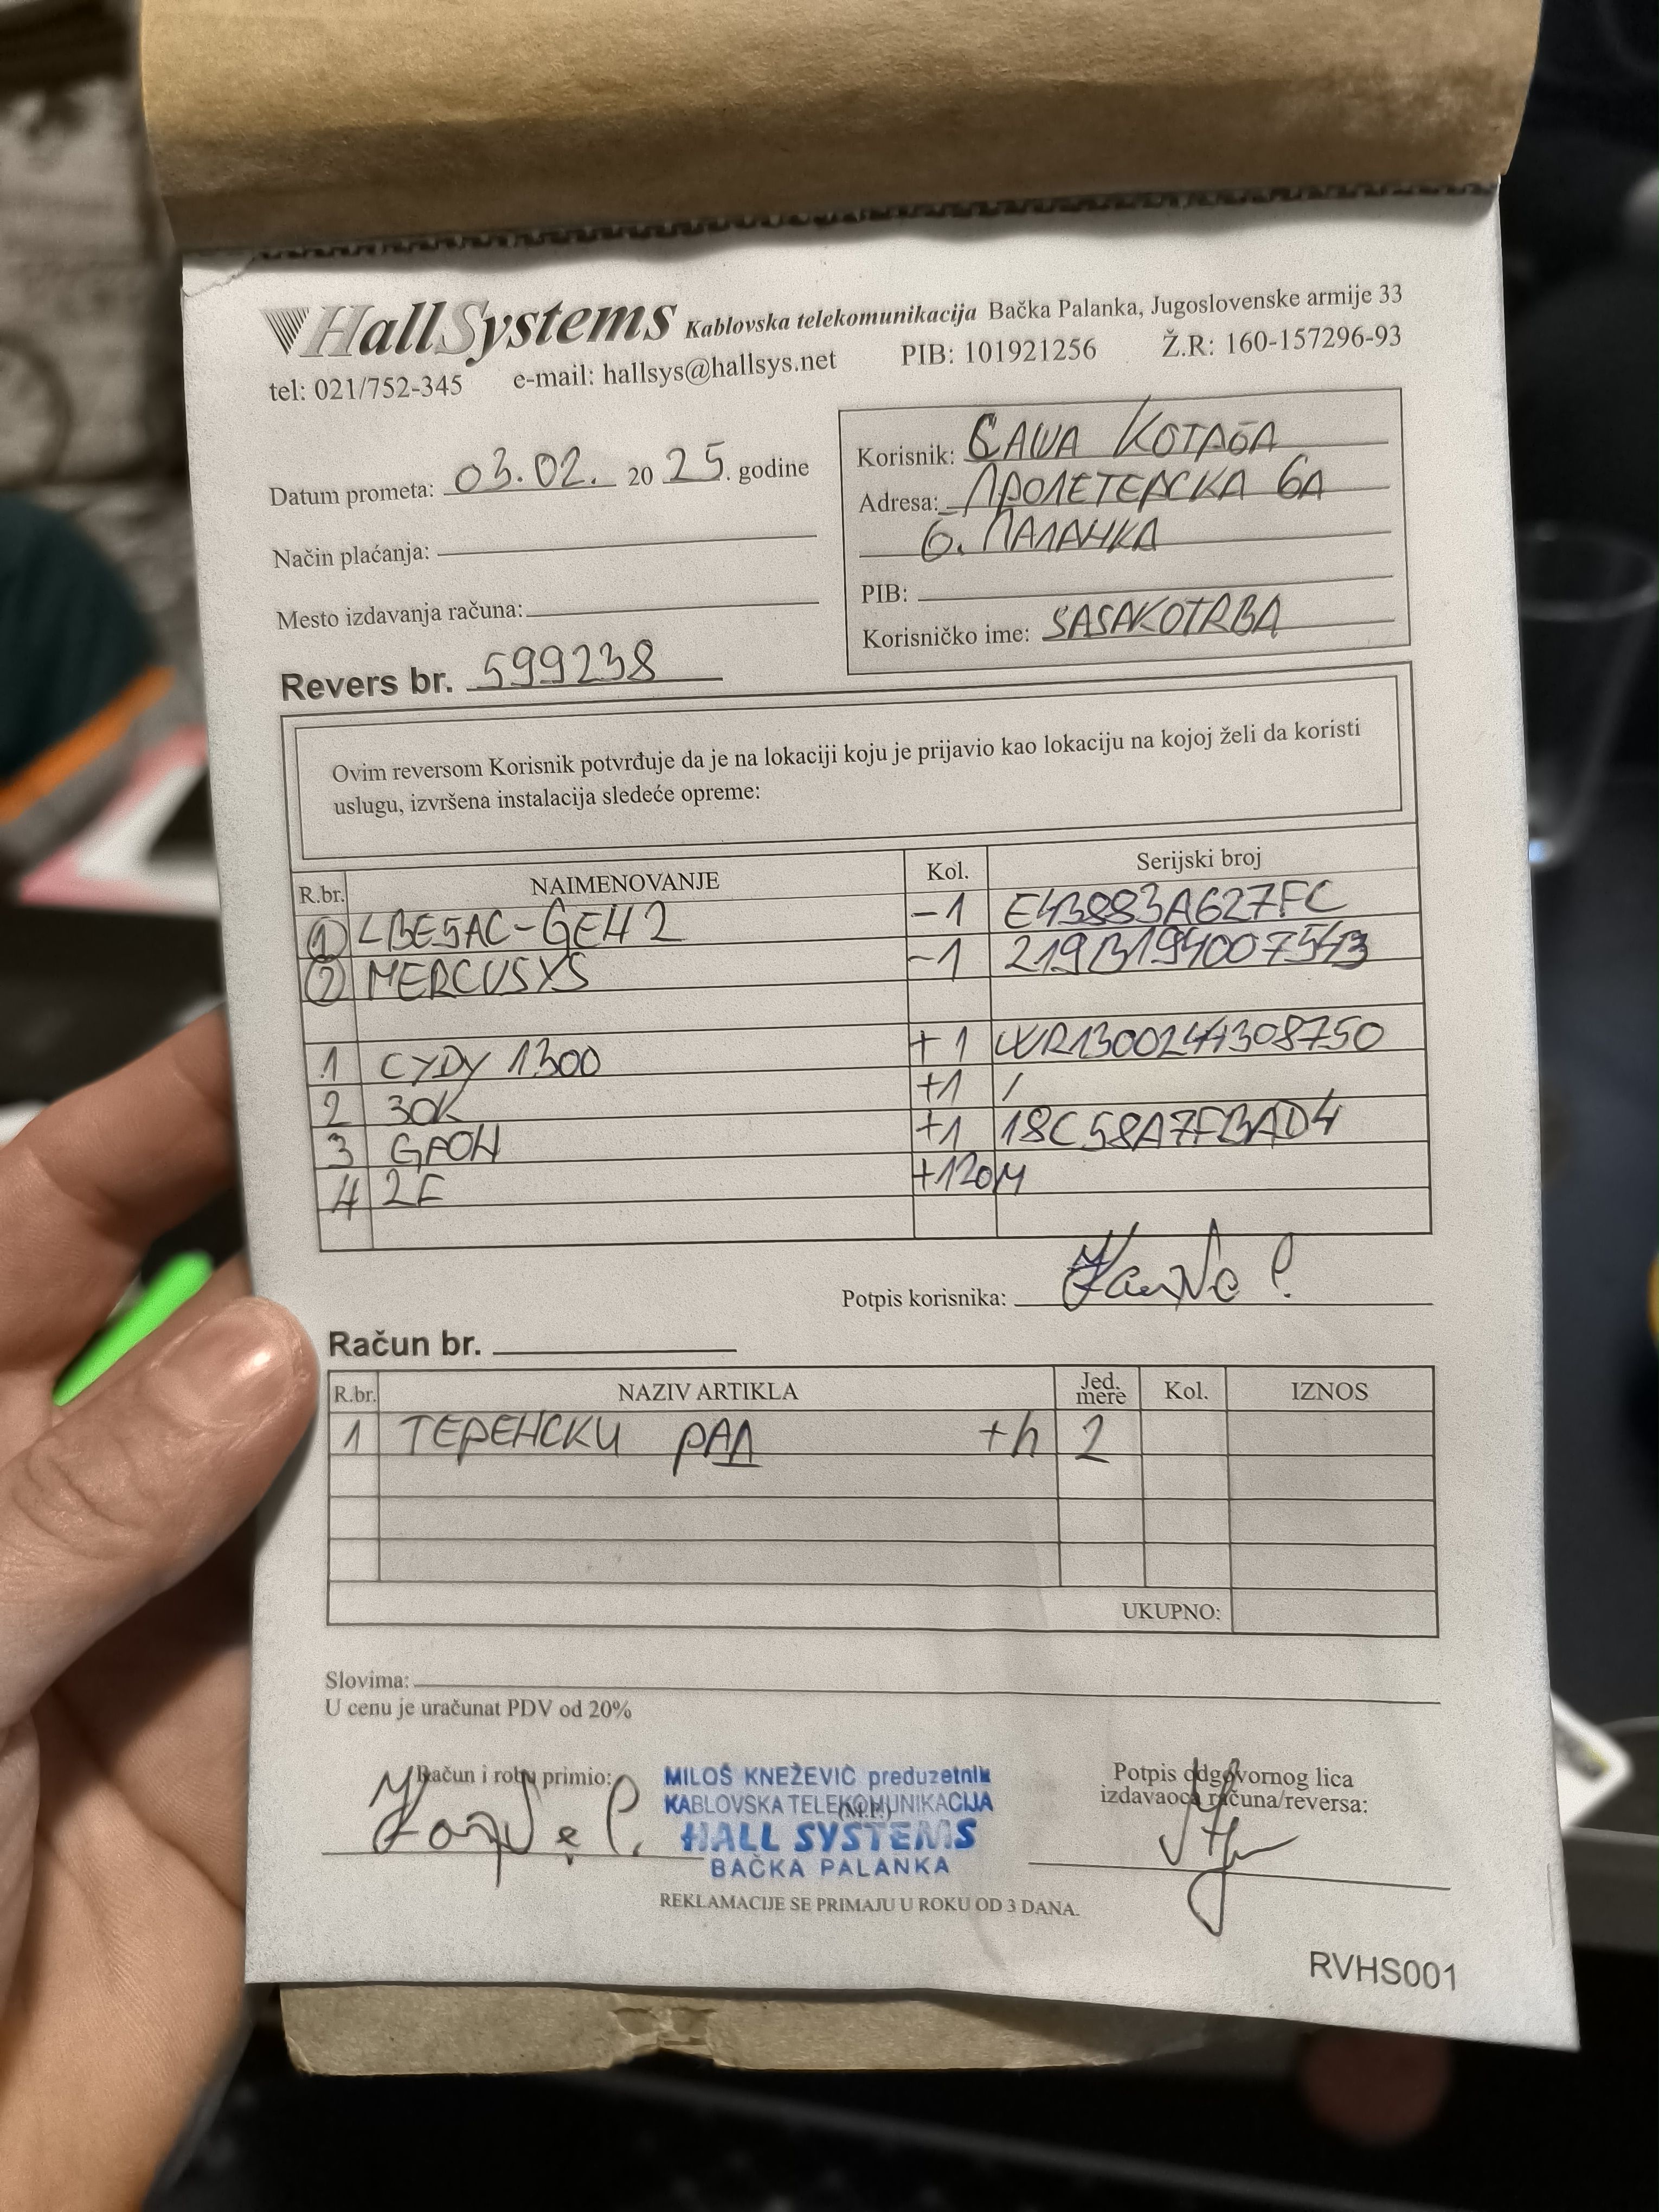 HallSystems Kablovska telekomunikacija Bačka Palanka, Jugoslovenske armije 33
tel: 021/752-345 e-mail: hallsys@hallsys.net PIB: 101921256 Ž.R: 160-157296-93
Datum prometa: 03.02. 20 25. godine
Način plaćanja:
Mesto izdavanja računa:
Revers br. 599238
Korisnik: САША КОТРБА
Adresa: ПРОЛЕТЕРСКА 6А
Б. ПАЛАНКА
PIB:
Korisničko ime: SASAKOTRBA
Ovim reversom Korisnik potvrđuje da je na lokaciji koju je prijavio kao lokaciju na kojoj želi da koristi
uslugu, izvršena instalacija sledeće opreme:
R.br. NAIMENOVANJE Kol. Serijski broj
1 LBE5AC-GEH2 -1 E43883A627FC
2 MERCUSYS -1
1 CYDY 1300 +1
2 ЗОК +1 /
3 GPON +1 18C58A7FBAD4
4 2F +120M
Potpis korisnika:
Račun br.
R.br. NAZIV ARTIKLA Jed. mere Kol. IZNOS
1 ТЕРЕНСКИ РАД +h 2
UKUPNO:
Slovima:
U cenu je uračunat PDV od 20%
Račun i robu primio:
MILOŠ KNEŽEVIĆ preduzetnik
KABLOVSKA TELEKOMUNIKACIJA
(M.P.)
HALL SYSTEMS
BAČKA PALANKA
Potpis odgovornog lica
izdavaoca računa/reversa:
REKLAMACIJE SE PRIMAJU U ROKU OD 3 DANA.
RVHS001